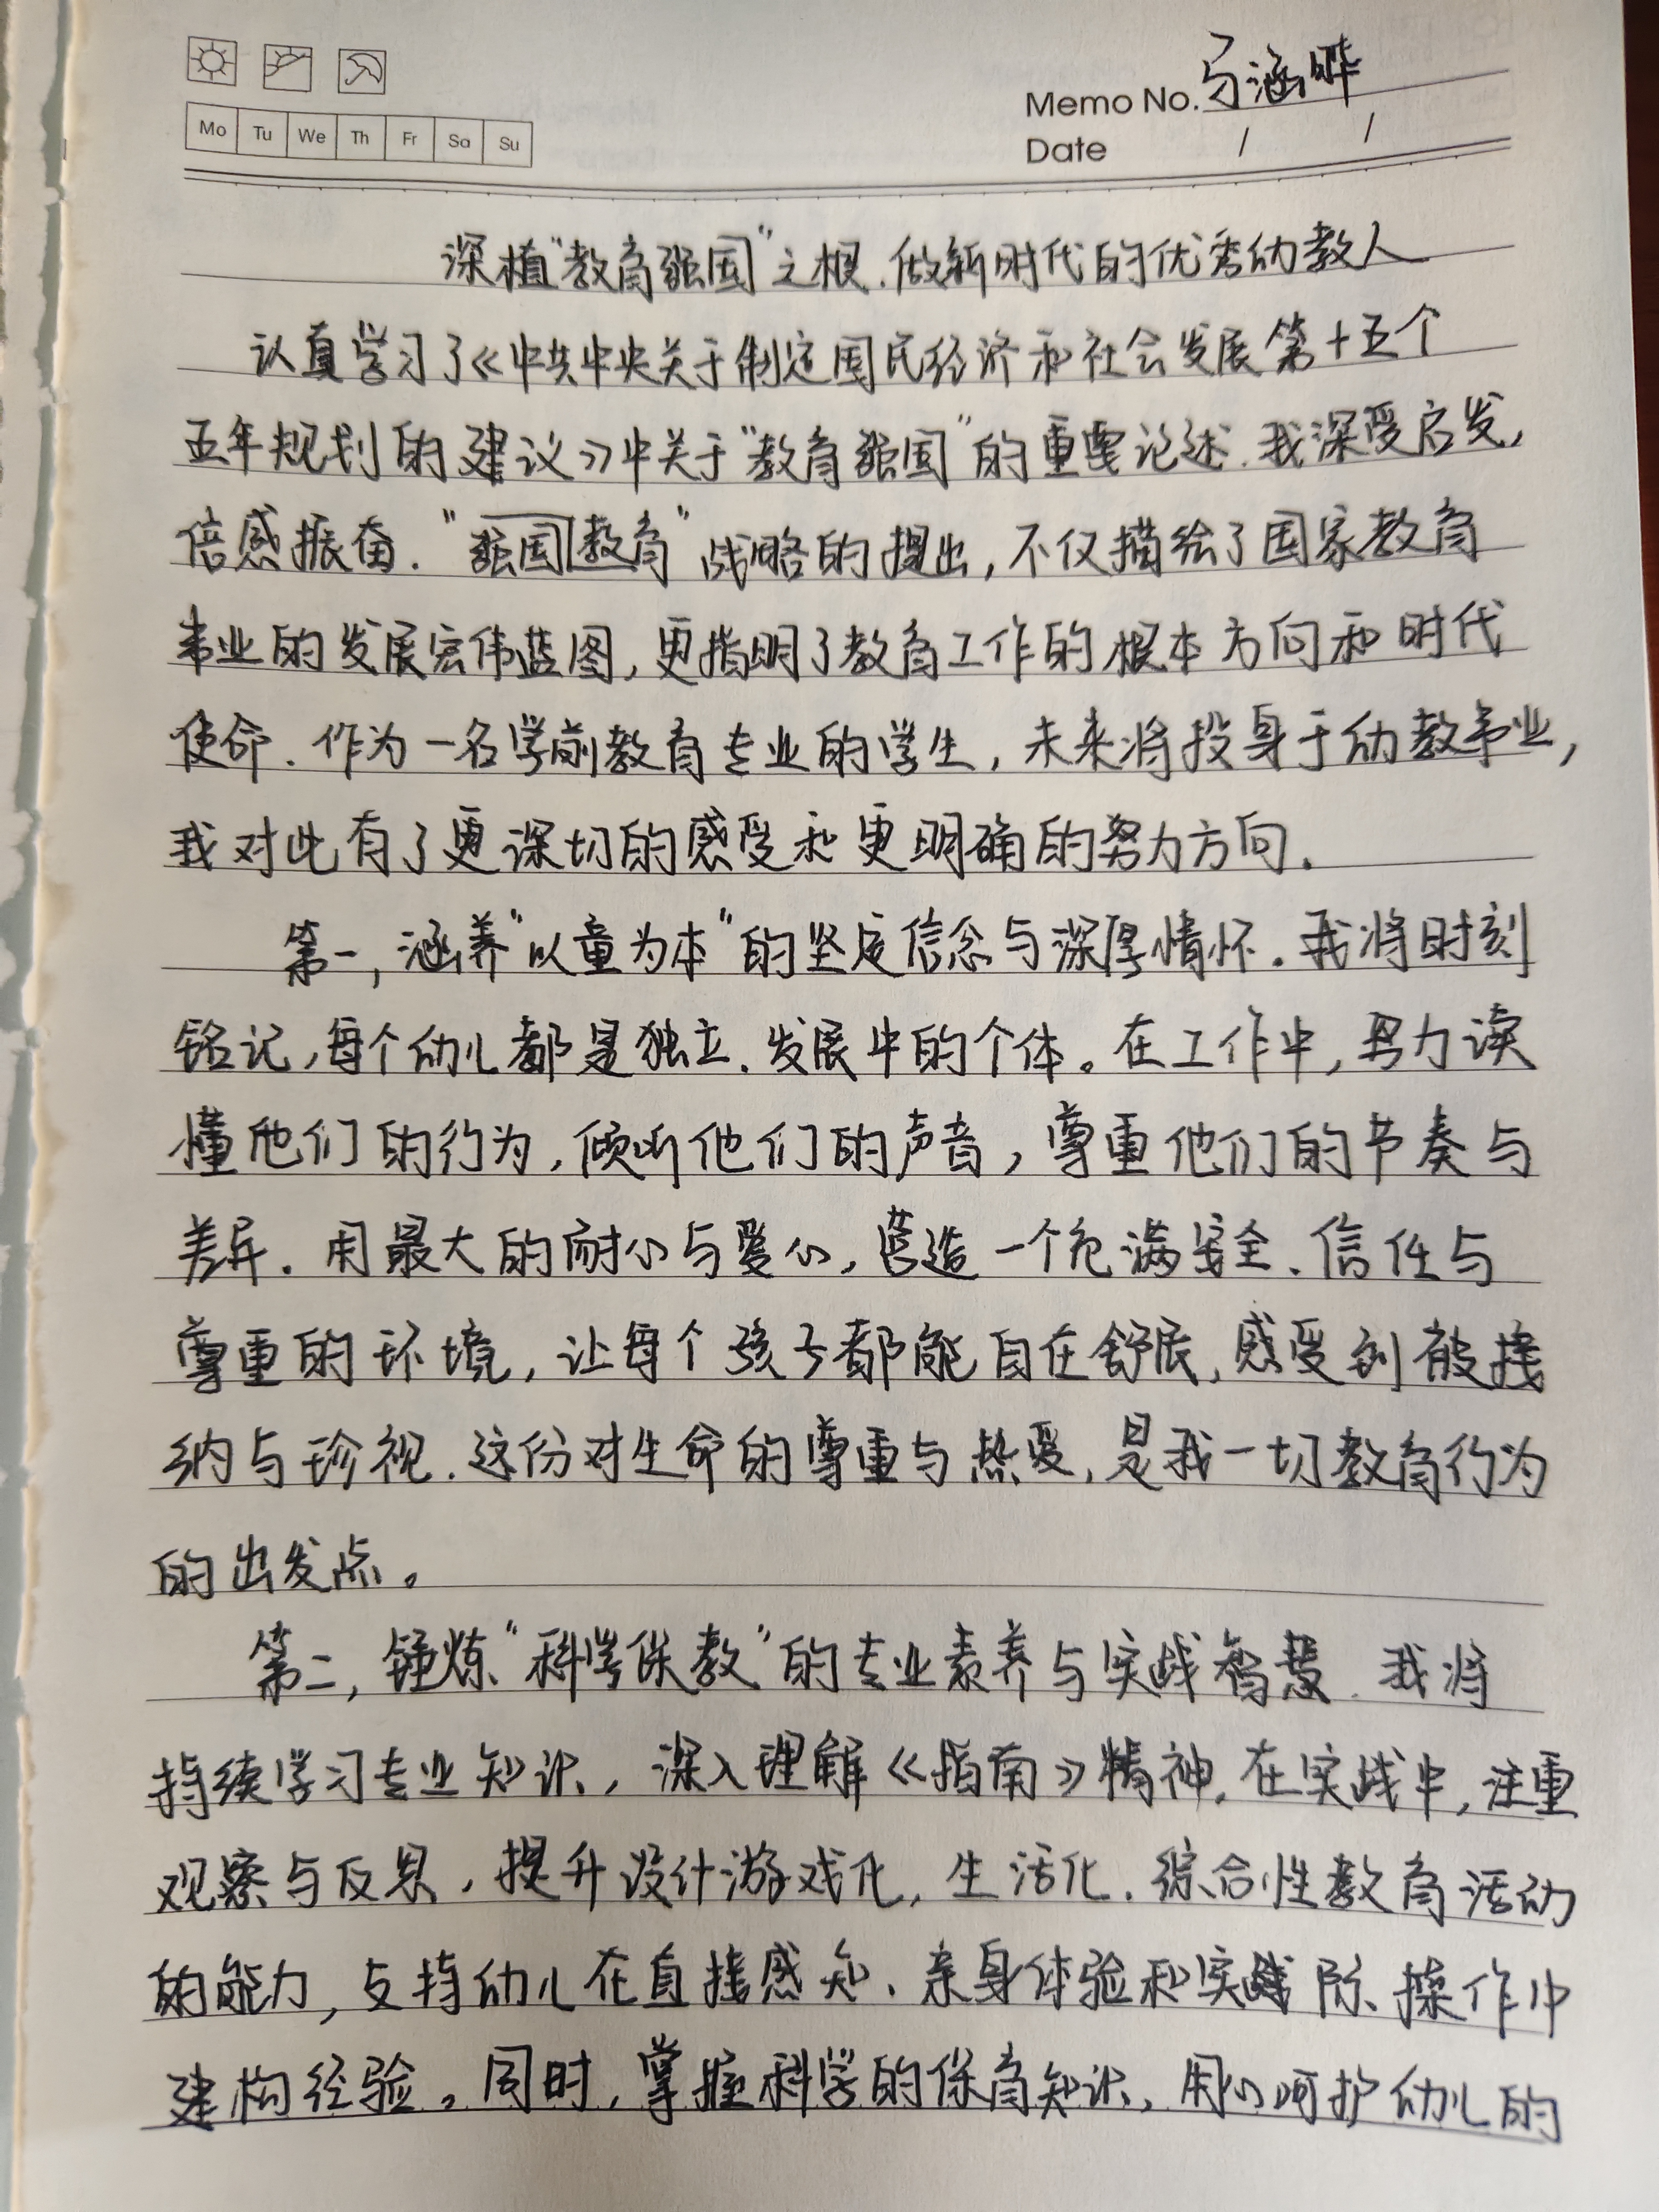 Memo No. 马涵晔
Mo Tu We Th Fr Sa Su
Date / /
深植“教育强国”之根,做新时代的优秀幼教人
认真学习了《中共中央关于制定国民经济和社会发展第十五个
五年规划的建议》中关于“教育强国”的重要论述,我深受启发,
倍感振奋.“强国教育”战略的提出,不仅描绘了国家教育
事业的发展宏伟蓝图,更指明了教育工作的根本方向和时代
使命.作为一名学前教育专业的学生,未来将投身于幼教事业,
我对此有了更深切的感受和更明确的努力方向.
第一,涵养“以童为本”的坚定信念与深厚情怀.我将时刻
铭记,每个幼儿都是独立、发展中的个体。在工作中,努力读
懂他们的行为,倾听他们的声音,尊重他们的节奏与
差异.用最大的耐心与爱心,营造一个充满安全、信任与
尊重的环境,让每个孩子都能自在舒展,感受到被接
纳与珍视.这份对生命的尊重与热爱,是我一切教育行为
的出发点。
第二,锤炼“科学保教”的专业素养与实践智慧.我将
持续学习专业知识,深入理解《指南》精神,在实践中,注重
观察与反思,提升设计游戏化,生活化、综合性教育活动
的能力,支持幼儿在直接感知、亲身体验和实际操作中
建构经验。同时,掌握科学的保育知识,用心呵护幼儿的